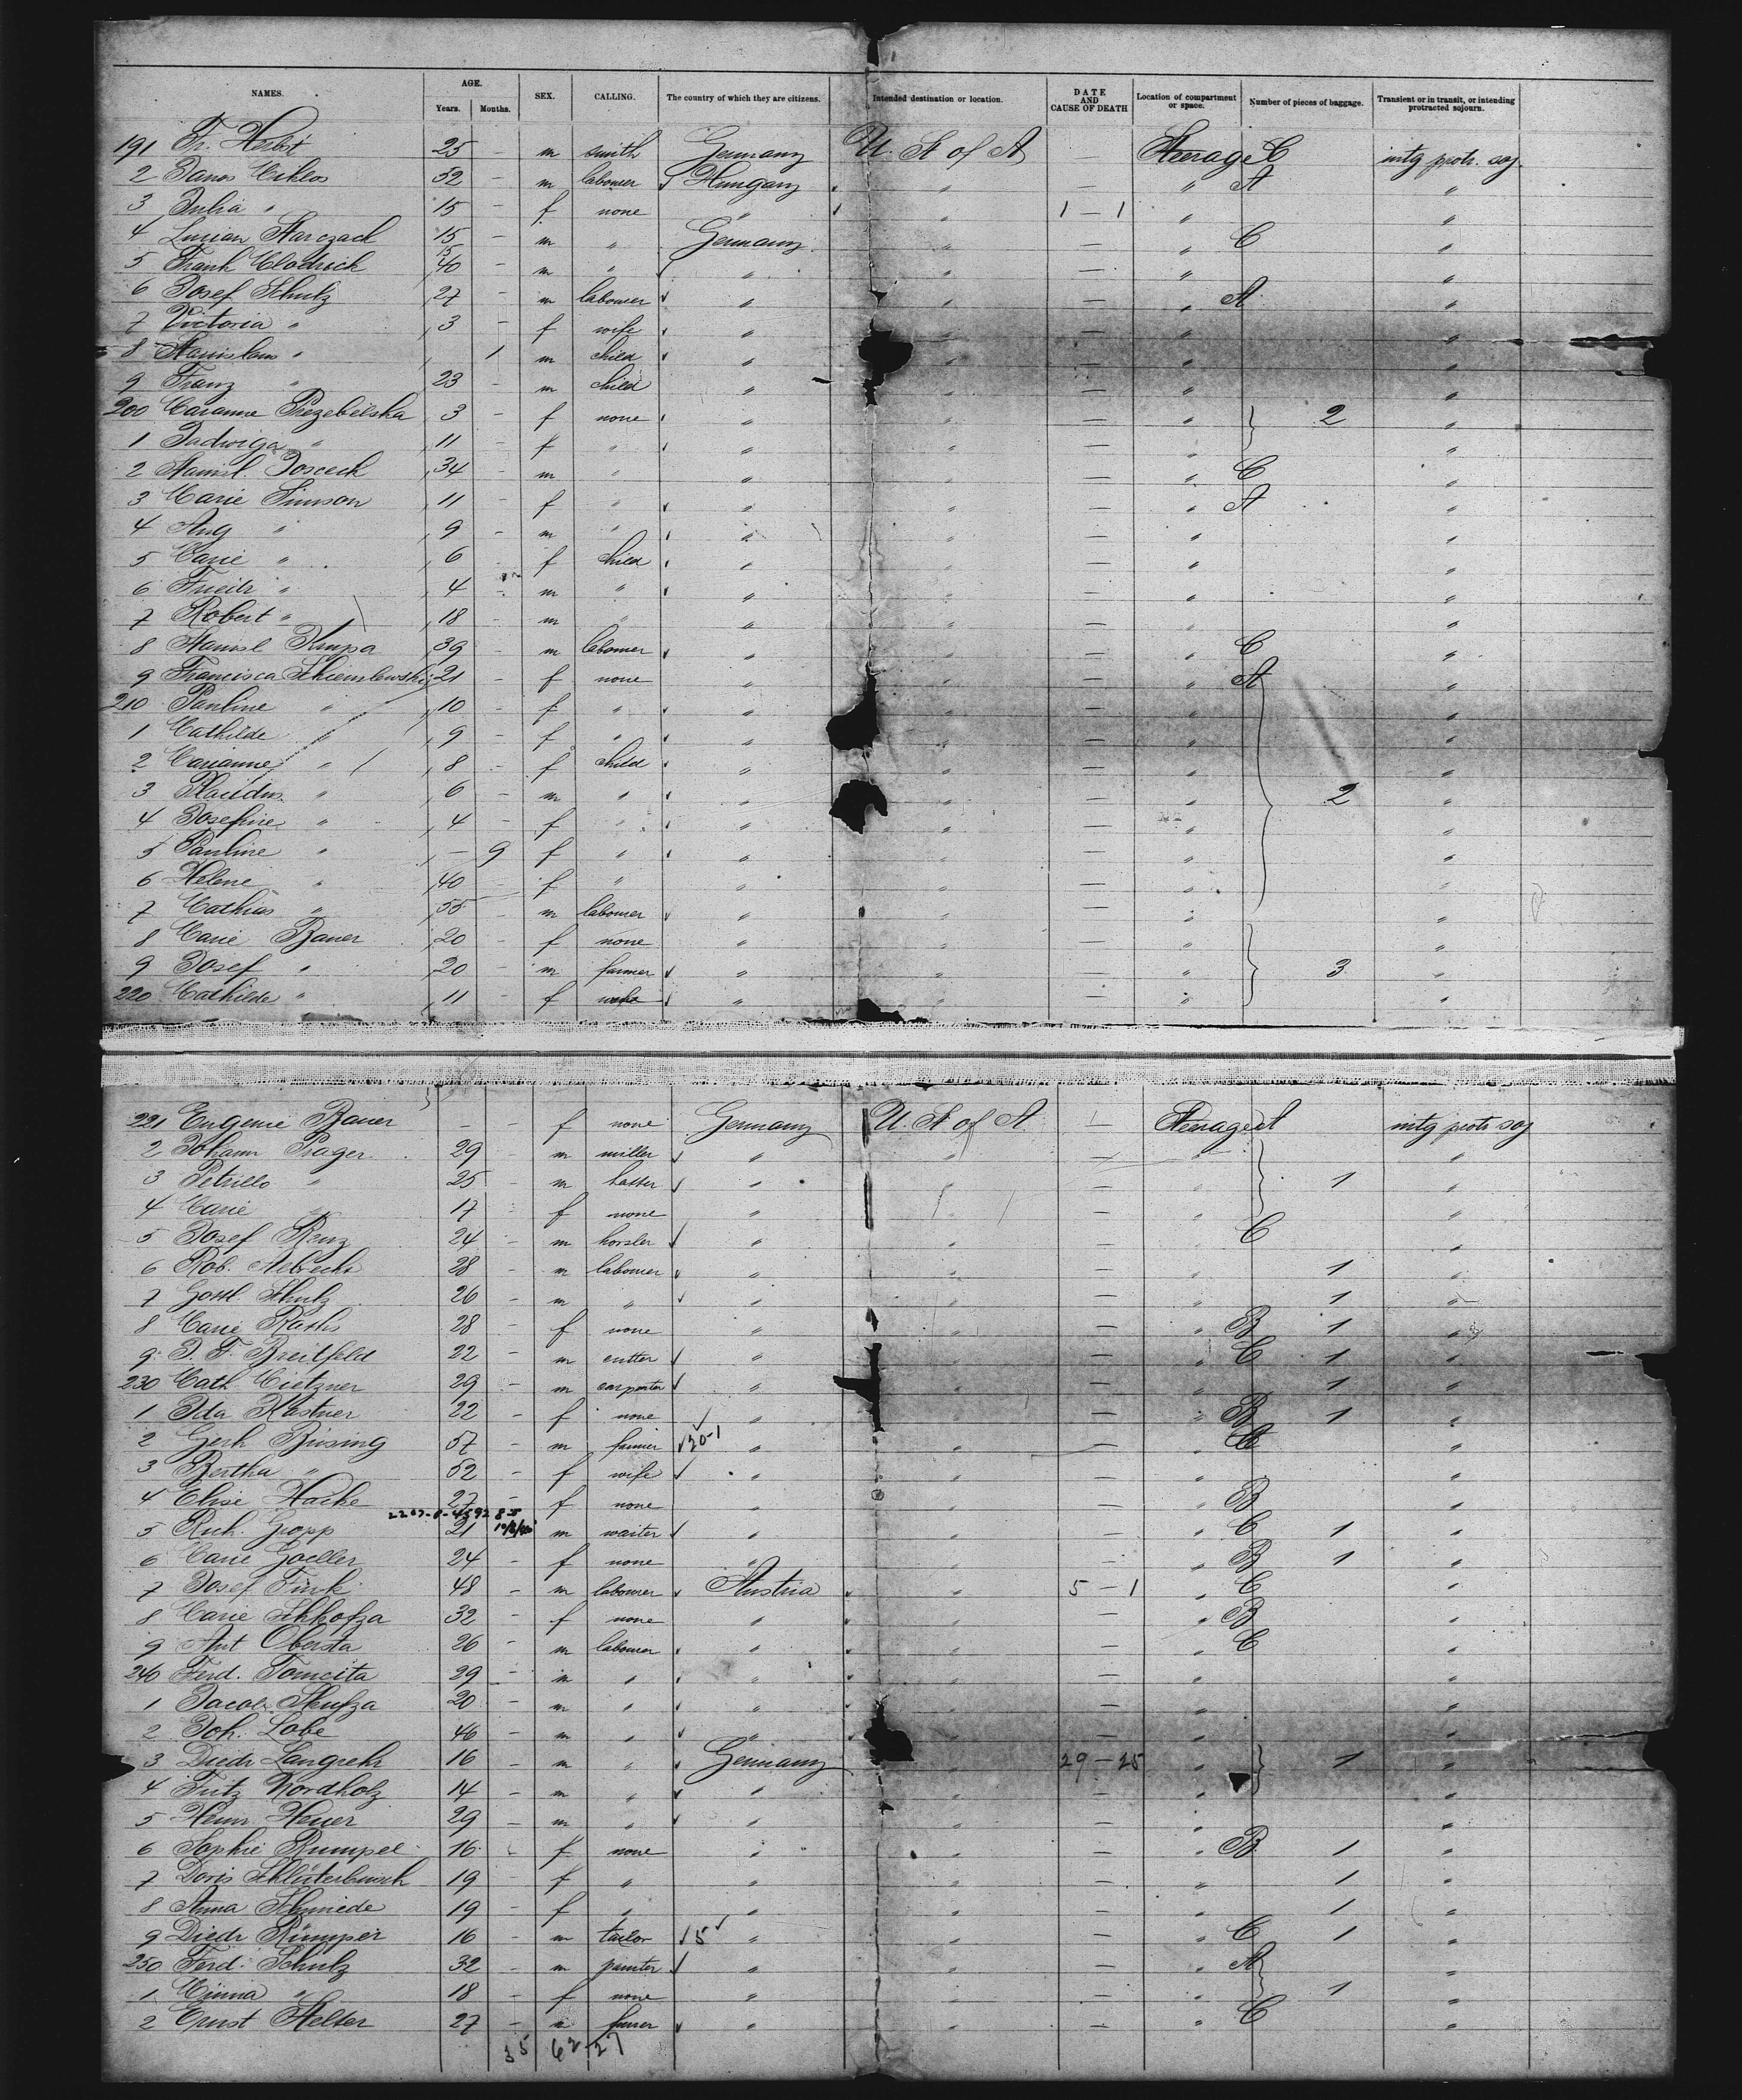 NAMES. AGE. Years. Months. SEX. CALLING. The country of which they are citizens. Intended destination or location. DATE AND CAUSE OF DEATH Location of compartment or space. Number of pieces of baggage. Transient or in transit, or intending protracted sojourn.
191 Fr. Herbst 25 - m smith Germany U. St of A - Steerage C intg protr. soj.
2 Janos Miklos 32 - m labourer Hungary " - " A "
3 Julia " 15 - f none " " 1 - 1 " "
4 Lucian 15 - m " Germany " - " C "
5 Frank 40 - m " " " - " "
6 Josef Schulz 27 - m labourer " " - " A "
7 Victoria " 3 - f wife " " - " "
8 Stanislaus " 1 m child " " - " "
9 Franz " 23 - m child " " - " "
200 Marianne Przezbelska 3 - f none " " - " 2 "
1 Jadwiga " 11 - f " " " - " "
2 Stanisl. 34 - m " " " - " C "
3 Marie Simson 11 - f " " " - " A "
4 Aug " 9 - m " " " - " "
5 Marie " 6 f child " " - " "
6 Friedr " 4 - m " " " - " "
7 Robert " 18 - m " " " - " "
8 Stanisl Krupa 39 - m labourer " " - " C "
9 Francisca 21 - f none " " - " A "
210 Pauline " 10 - f " " " - " "
1 Mathilde " 9 - f " " " - " "
2 Marianne " 8 - f child " " - " "
3 " 6 - m " " " - " 2 "
4 Josefine " 4 - f " " " - " "
5 Pauline " - 9 f " " " - " "
6 Helene " 40 - f " " " - " "
7 Mathias " 55 - m labourer " " - " "
8 Marie Bauer 20 - f none " " - " "
9 Josef " 20 - m farmer " " - " 3 "
220 Mathilde " 11 - f " " - " "
221 Eugenie Bauer - - f none Germany U. St of A - Steerage A intg protr soj
2 Johann Prager 29 m miller " " - " "
3 " 25 - m hatter " - " 1 "
4 Marie " 17 - f none " - " "
5 Josef Renz 24 - m " " - " C "
6 Rob. 28 - m labourer " " - " 1 "
7 Gottl. Schulz 26 - m " " " - " 1 "
8 Marie 28 - f none " " - " B 1 "
9 J. F. Breitfeld 22 - m cutter " " - " C 1 "
230 Math. Mietzner 29 - m carpenter " " - " 1 "
1 Ida Kästner 22 - f none " " - " B 1 "
2 Gerh Büsing 57 - m farmer 30-1 " " - " "
3 Bertha " 52 - f wife " " - " "
4 Elise Hacke 27 - f none " " - " B "
5 Rich. Gropp 21 m waiter " " - " C 1 "
6 Marie Goeller 24 - f none " " - " B 1 "
7 Josef Fink 48 - m labourer Austria " 5 - 1 " C "
8 Marie 32 - f none " " - " B "
9 Ant Obersta 26 - m labourer " " - " C "
240 Ferd. Tomcita 29 - m " " " - " "
1 Jacob 20 - m " " " - " "
2 Joh. Lobe 46 - m " " " - " "
3 Diedr Langrehr 16 - m " Germany " 29 - 25 " 1 "
4 Fritz Nordholz 14 - m " " " - " "
5 Heinr Heuer 29 - m " " " - " "
6 Sophie Rumpel 16 - f none " " - " B 1 "
7 Doris Schlüterbusch 19 - f " " " - " 1 "
8 Anna Schmiede 19 - f " " " - " 1 "
9 Diedr Rümper 16 - m tailor 5 " " - " C 1 "
250 Ferd. Schulz 32 - m painter " " - " A "
1 Minna " 18 - f none " " - " 1 "
2 Ernst Stelter 27 - m " " - " C "
35 62-27